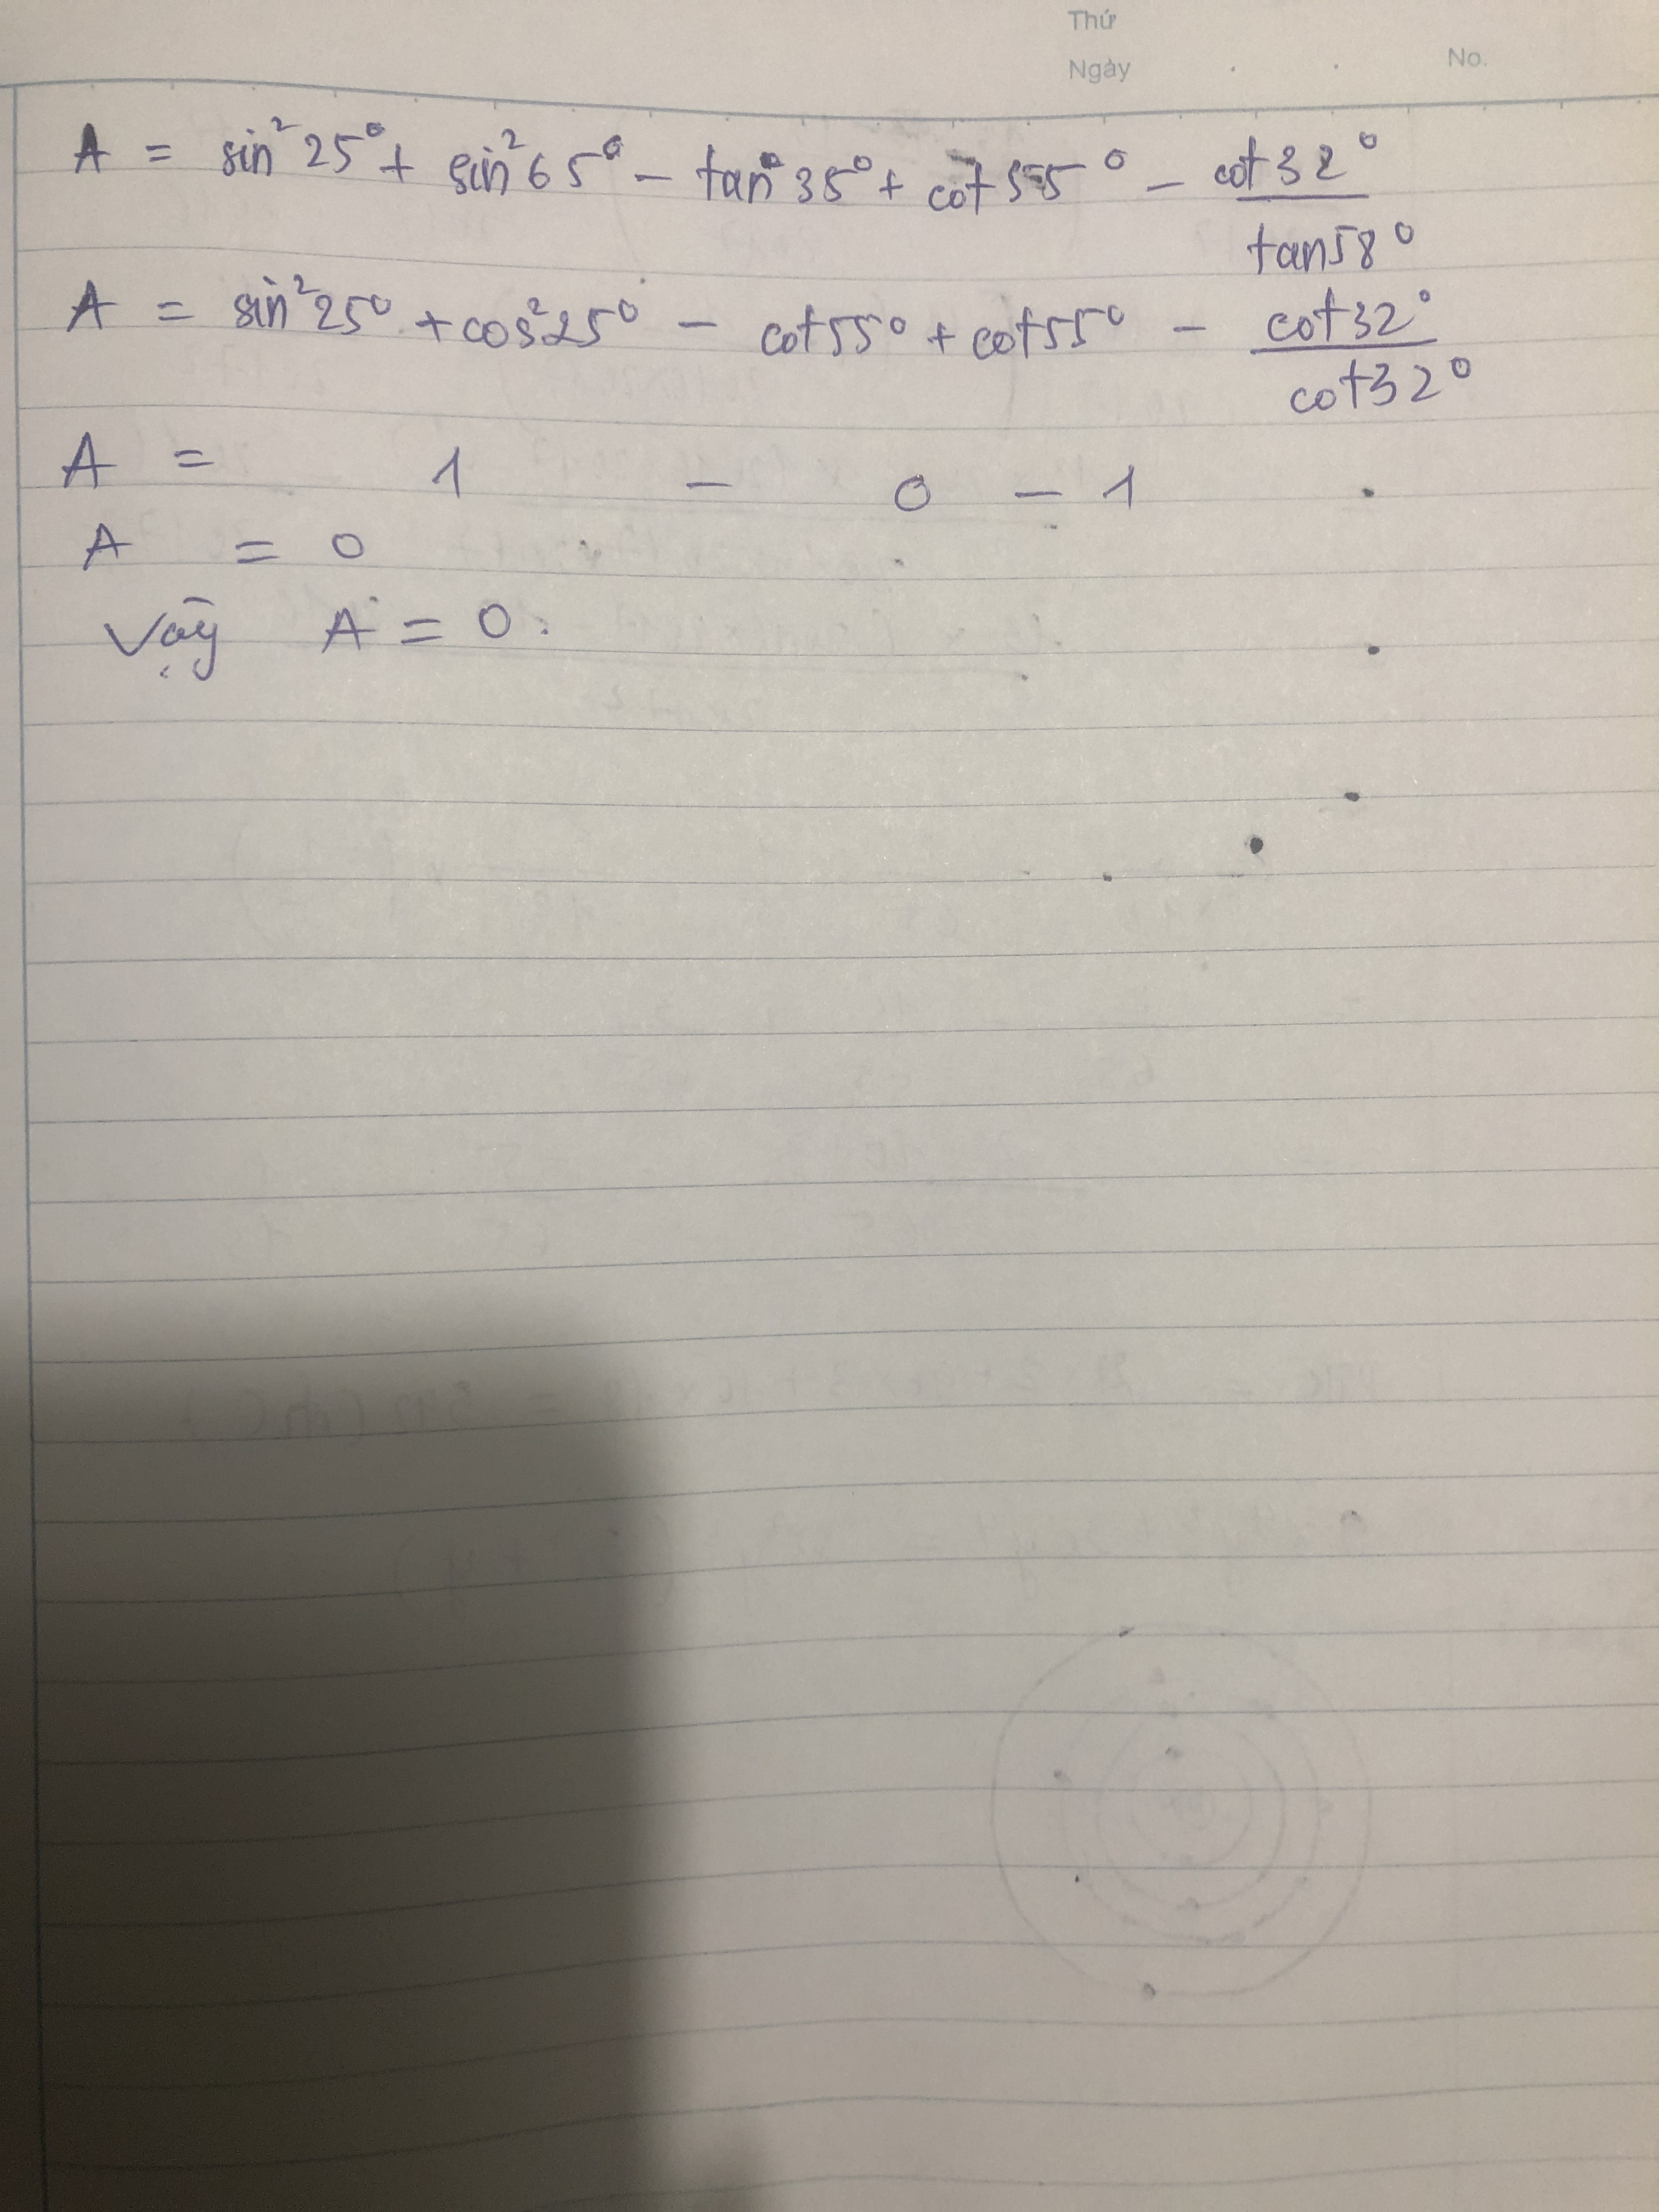 Thứ
Ngày No.
A = sin² 25° + sin² 65° - tan 35° + cot 55° - cot 32° / tan 58°
A = sin² 25° + cos² 25° - cot 55° + cot 55° - cot 32° / cot 32°
A = 1 - 0 - 1
A = 0
Vậy A = 0.